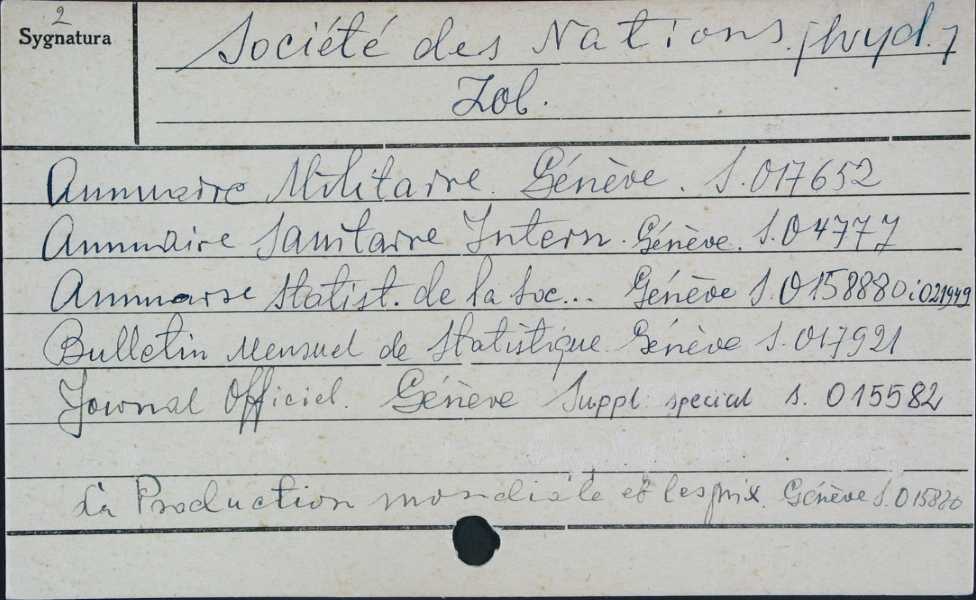 2
Sygnatura
Société des Nations. /wyd./
Zob.
Annuaire Militaire. Génève. S. 017652
Annuaire Sanitaire Intern. Génève. S. 04777
Annuaire Statist. de la Soc... Génève S. 0158880 i 021949
Bulletin Mensuel de Statistique Génève S. 017921
Journal Officiel. Génève Suppl. special S. 015582
La Production mondiale et les prix. Génève S. 015880